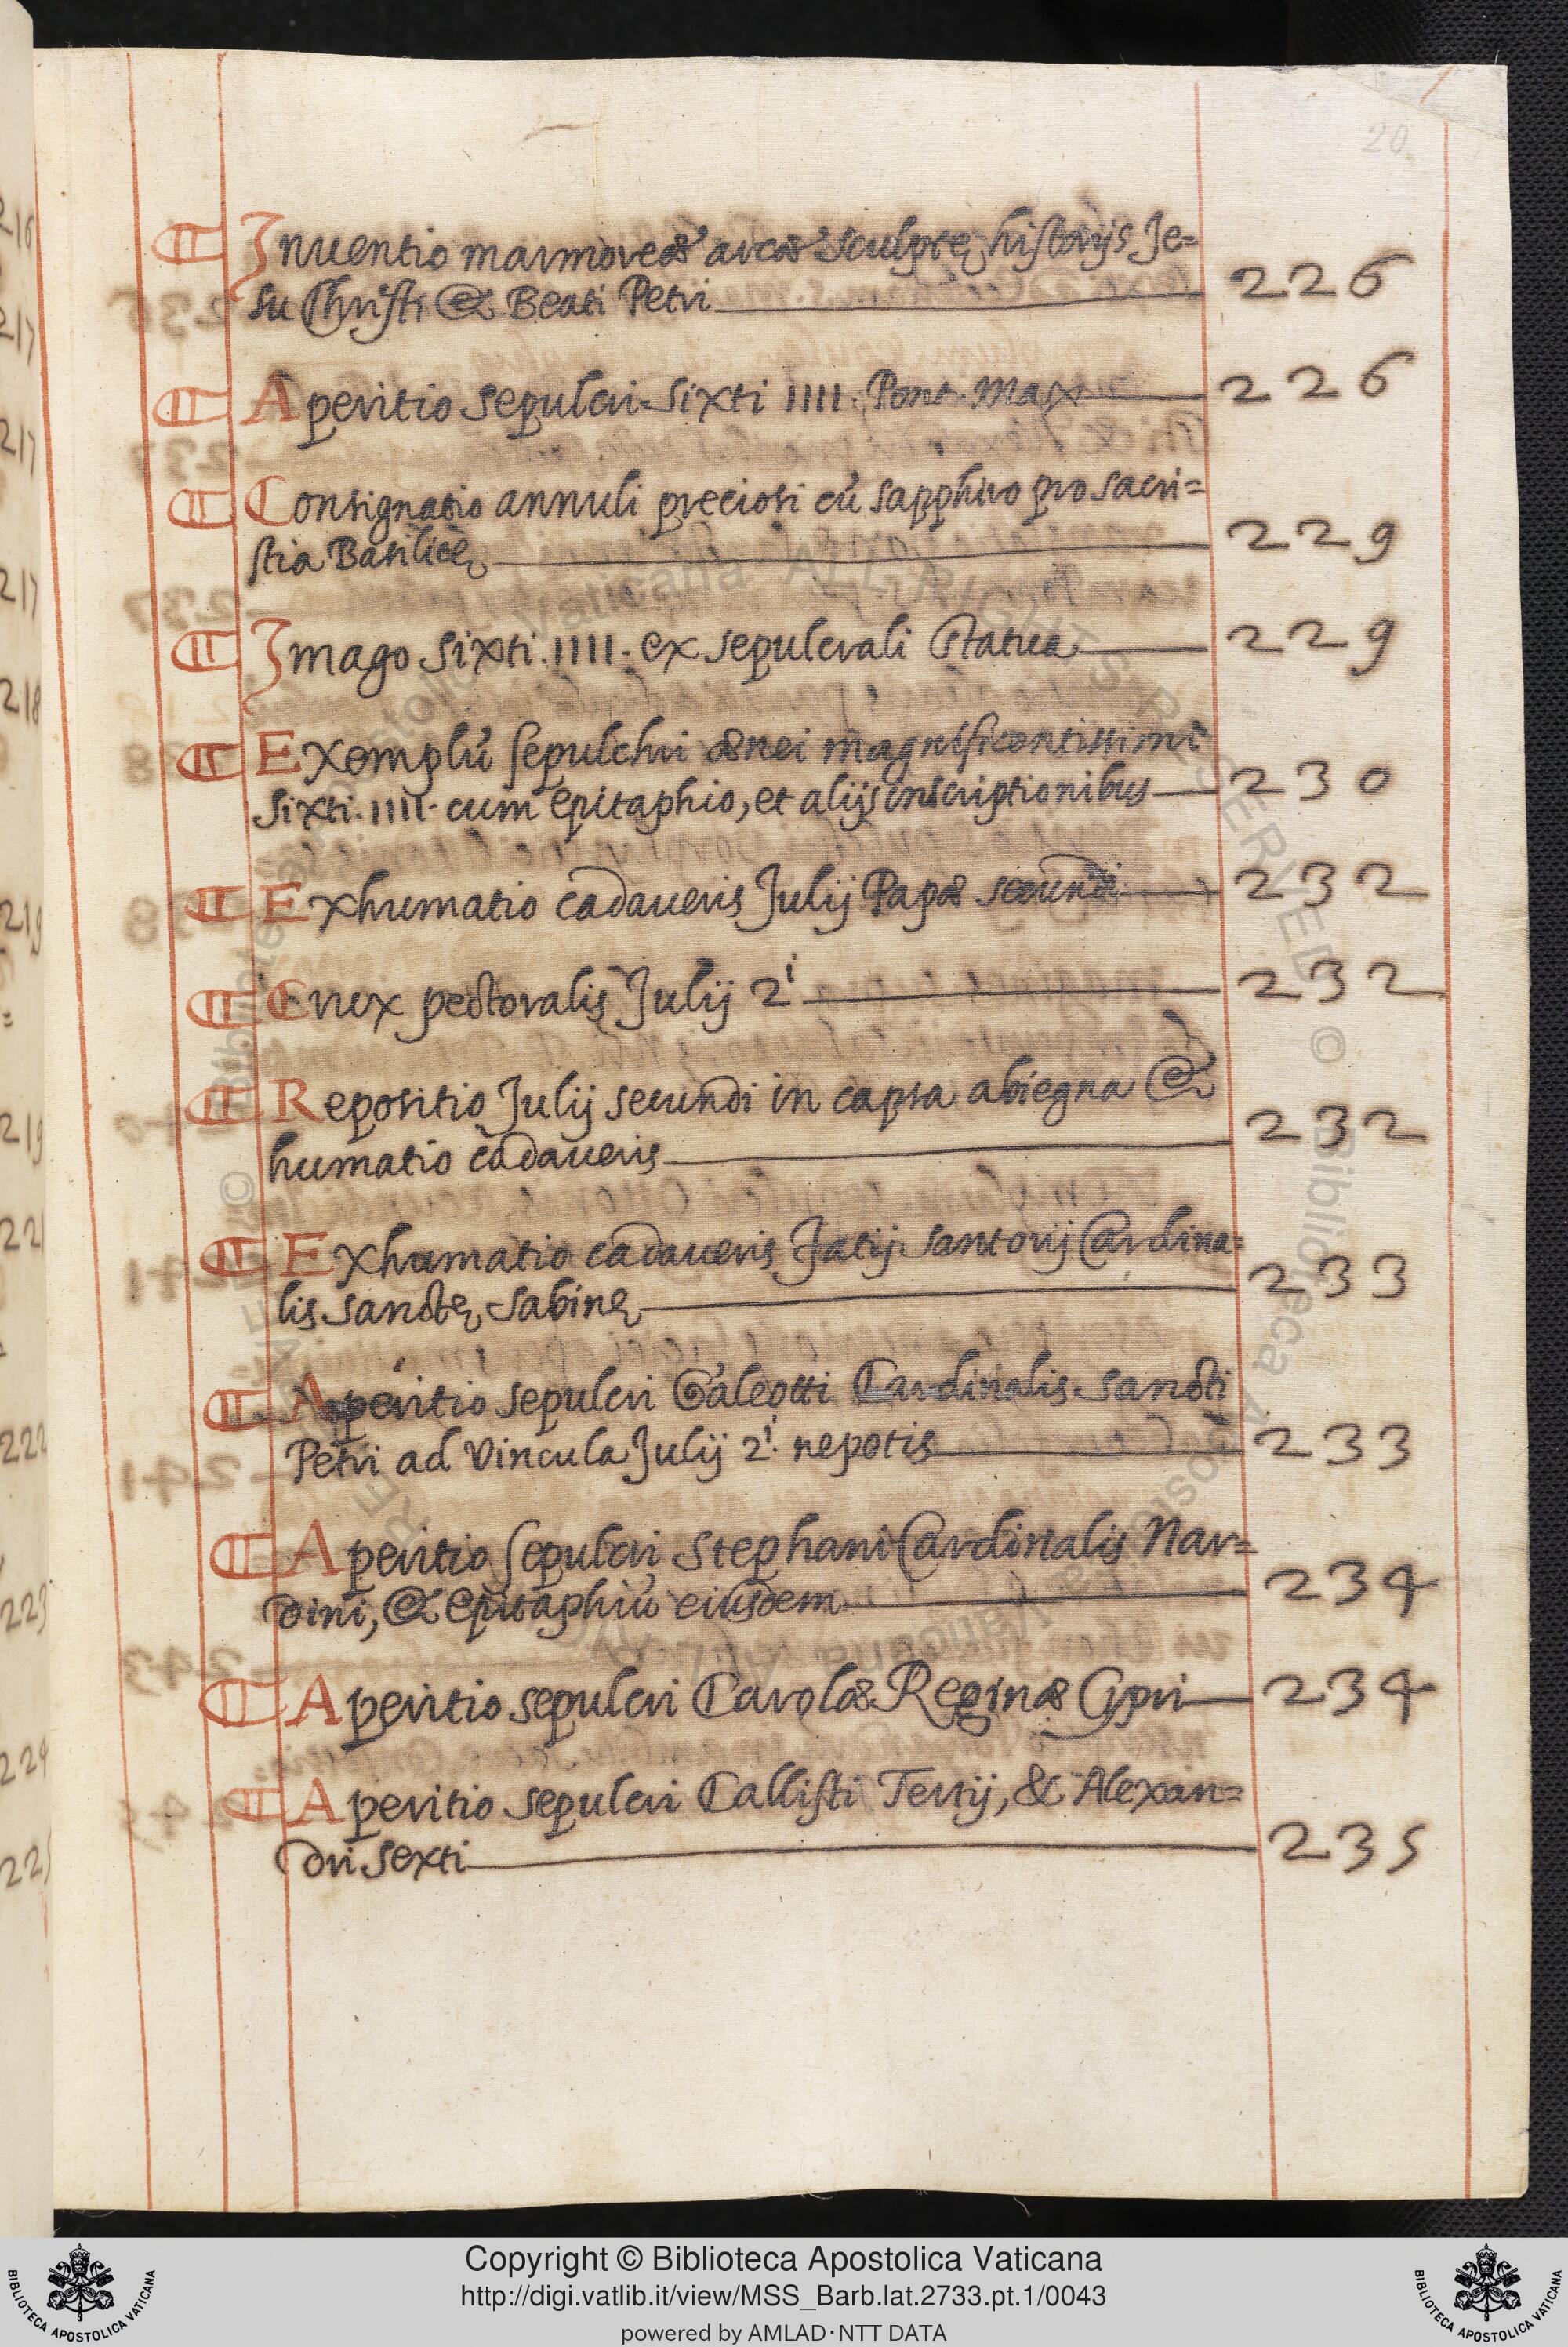 20
¶ Inuentio marmoreæ arcæ sculptę historijs Je=
su Christi & Beati Petri 226
¶ Aperitio sepulcri Sixti IIII. Pont. Max 226
¶ Consignatio annuli preciosi cū sapphiro pro sacri=
stia Basilicę 229
¶ Imago Sixti. IIII. ex sepulcrali statua 229
¶ Exemplū sepulchri ænei magnificentissimi
Sixti. IIII. cum epitaphio, et alijs inscriptionibus 230
¶ Exhumatio cadaueris Julij Papæ secundi 232
¶ Crux pectoralis Julij 2i 232
¶ Repositio Julij secundi in capsa abiegna &
humatio cadaueris 232
¶ Exhumatio cadaueris Fatij Santorij Cardina=
lis Sanctę Sabinę 233
¶ Aperitio sepulcri Galeotti Cardinalis Sancti
Petri ad Vincula Julij 2i. nepotis 233
¶ Aperitio sepulcri Stephani Cardinalis Nar=
dini, & Epitaphiū eiusdem 234
¶ Aperitio sepulcri Carolæ Reginæ Cypri 234
¶ Aperitio sepulcri Callisti Tertij, & Alexan=
dri Sexti 235
Copyright © Biblioteca Apostolica Vaticana
http://digi.vatlib.it/view/MSS_Barb.lat.2733.pt.1/0043
powered by AMLAD·NTT DATA
BIBLIOTECA APOSTOLICA VATICANA
BIBLIOTECA APOSTOLICA VATICANA